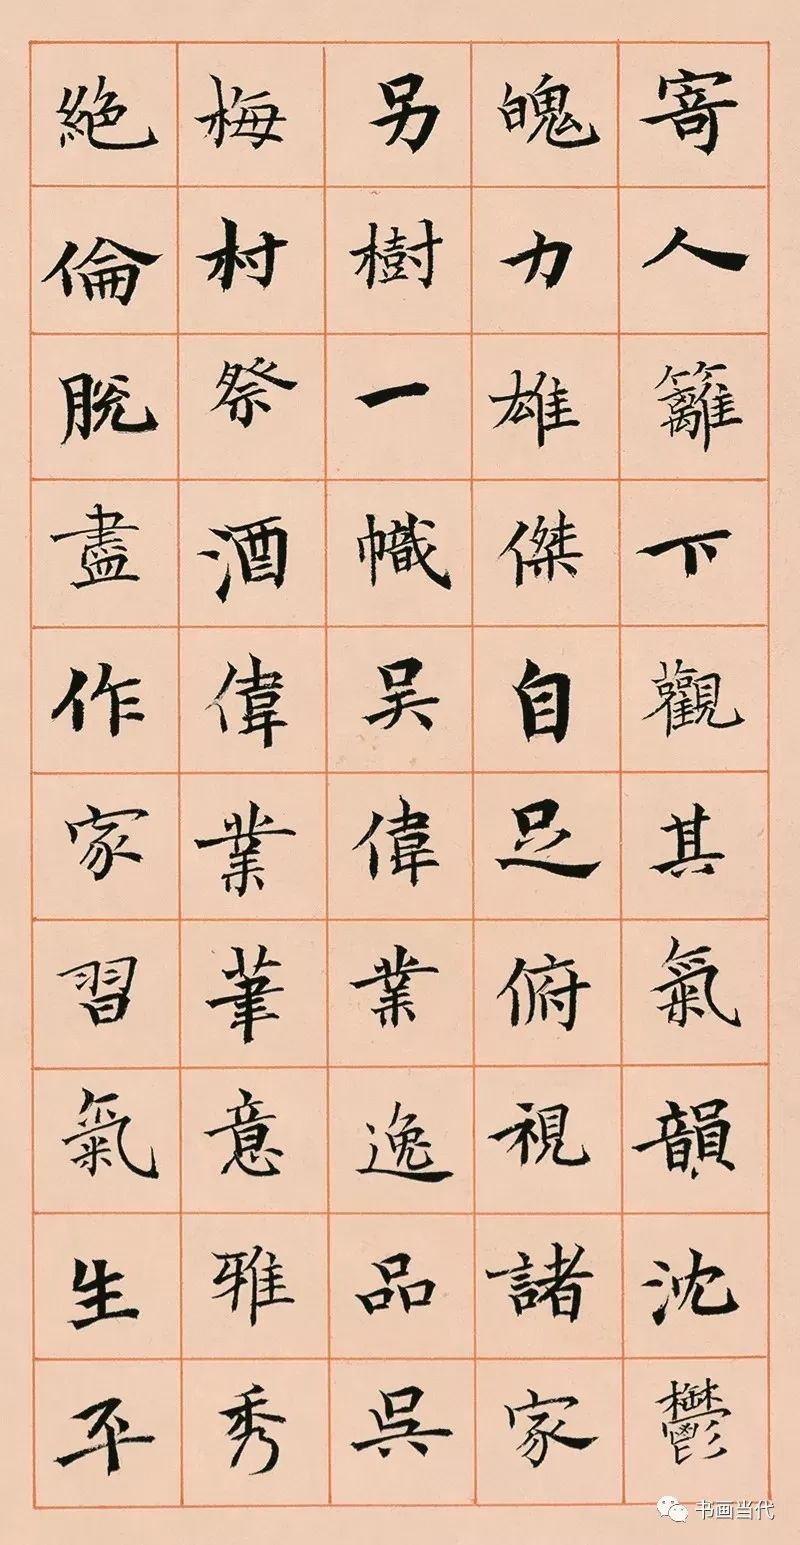 寄人籬下觀其氣韻沈鬱
魄力雄傑自足俯視諸家
另樹一幟吴偉業逸品吳
梅村祭酒偉業筆意雅秀
絶倫脫盡作家習氣生平
书画当代